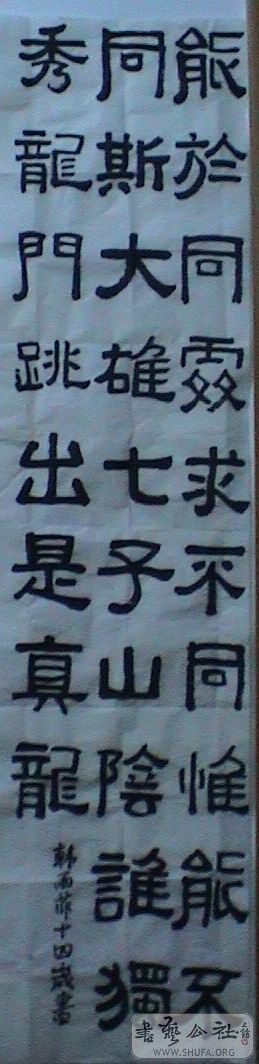 能於同處求不同惟能不
同斯大雄七子山陰誰獨
秀龍門跳出是真龍
韩雨菲十四歲書
書藝公社
WWW.SHUFA.ORG